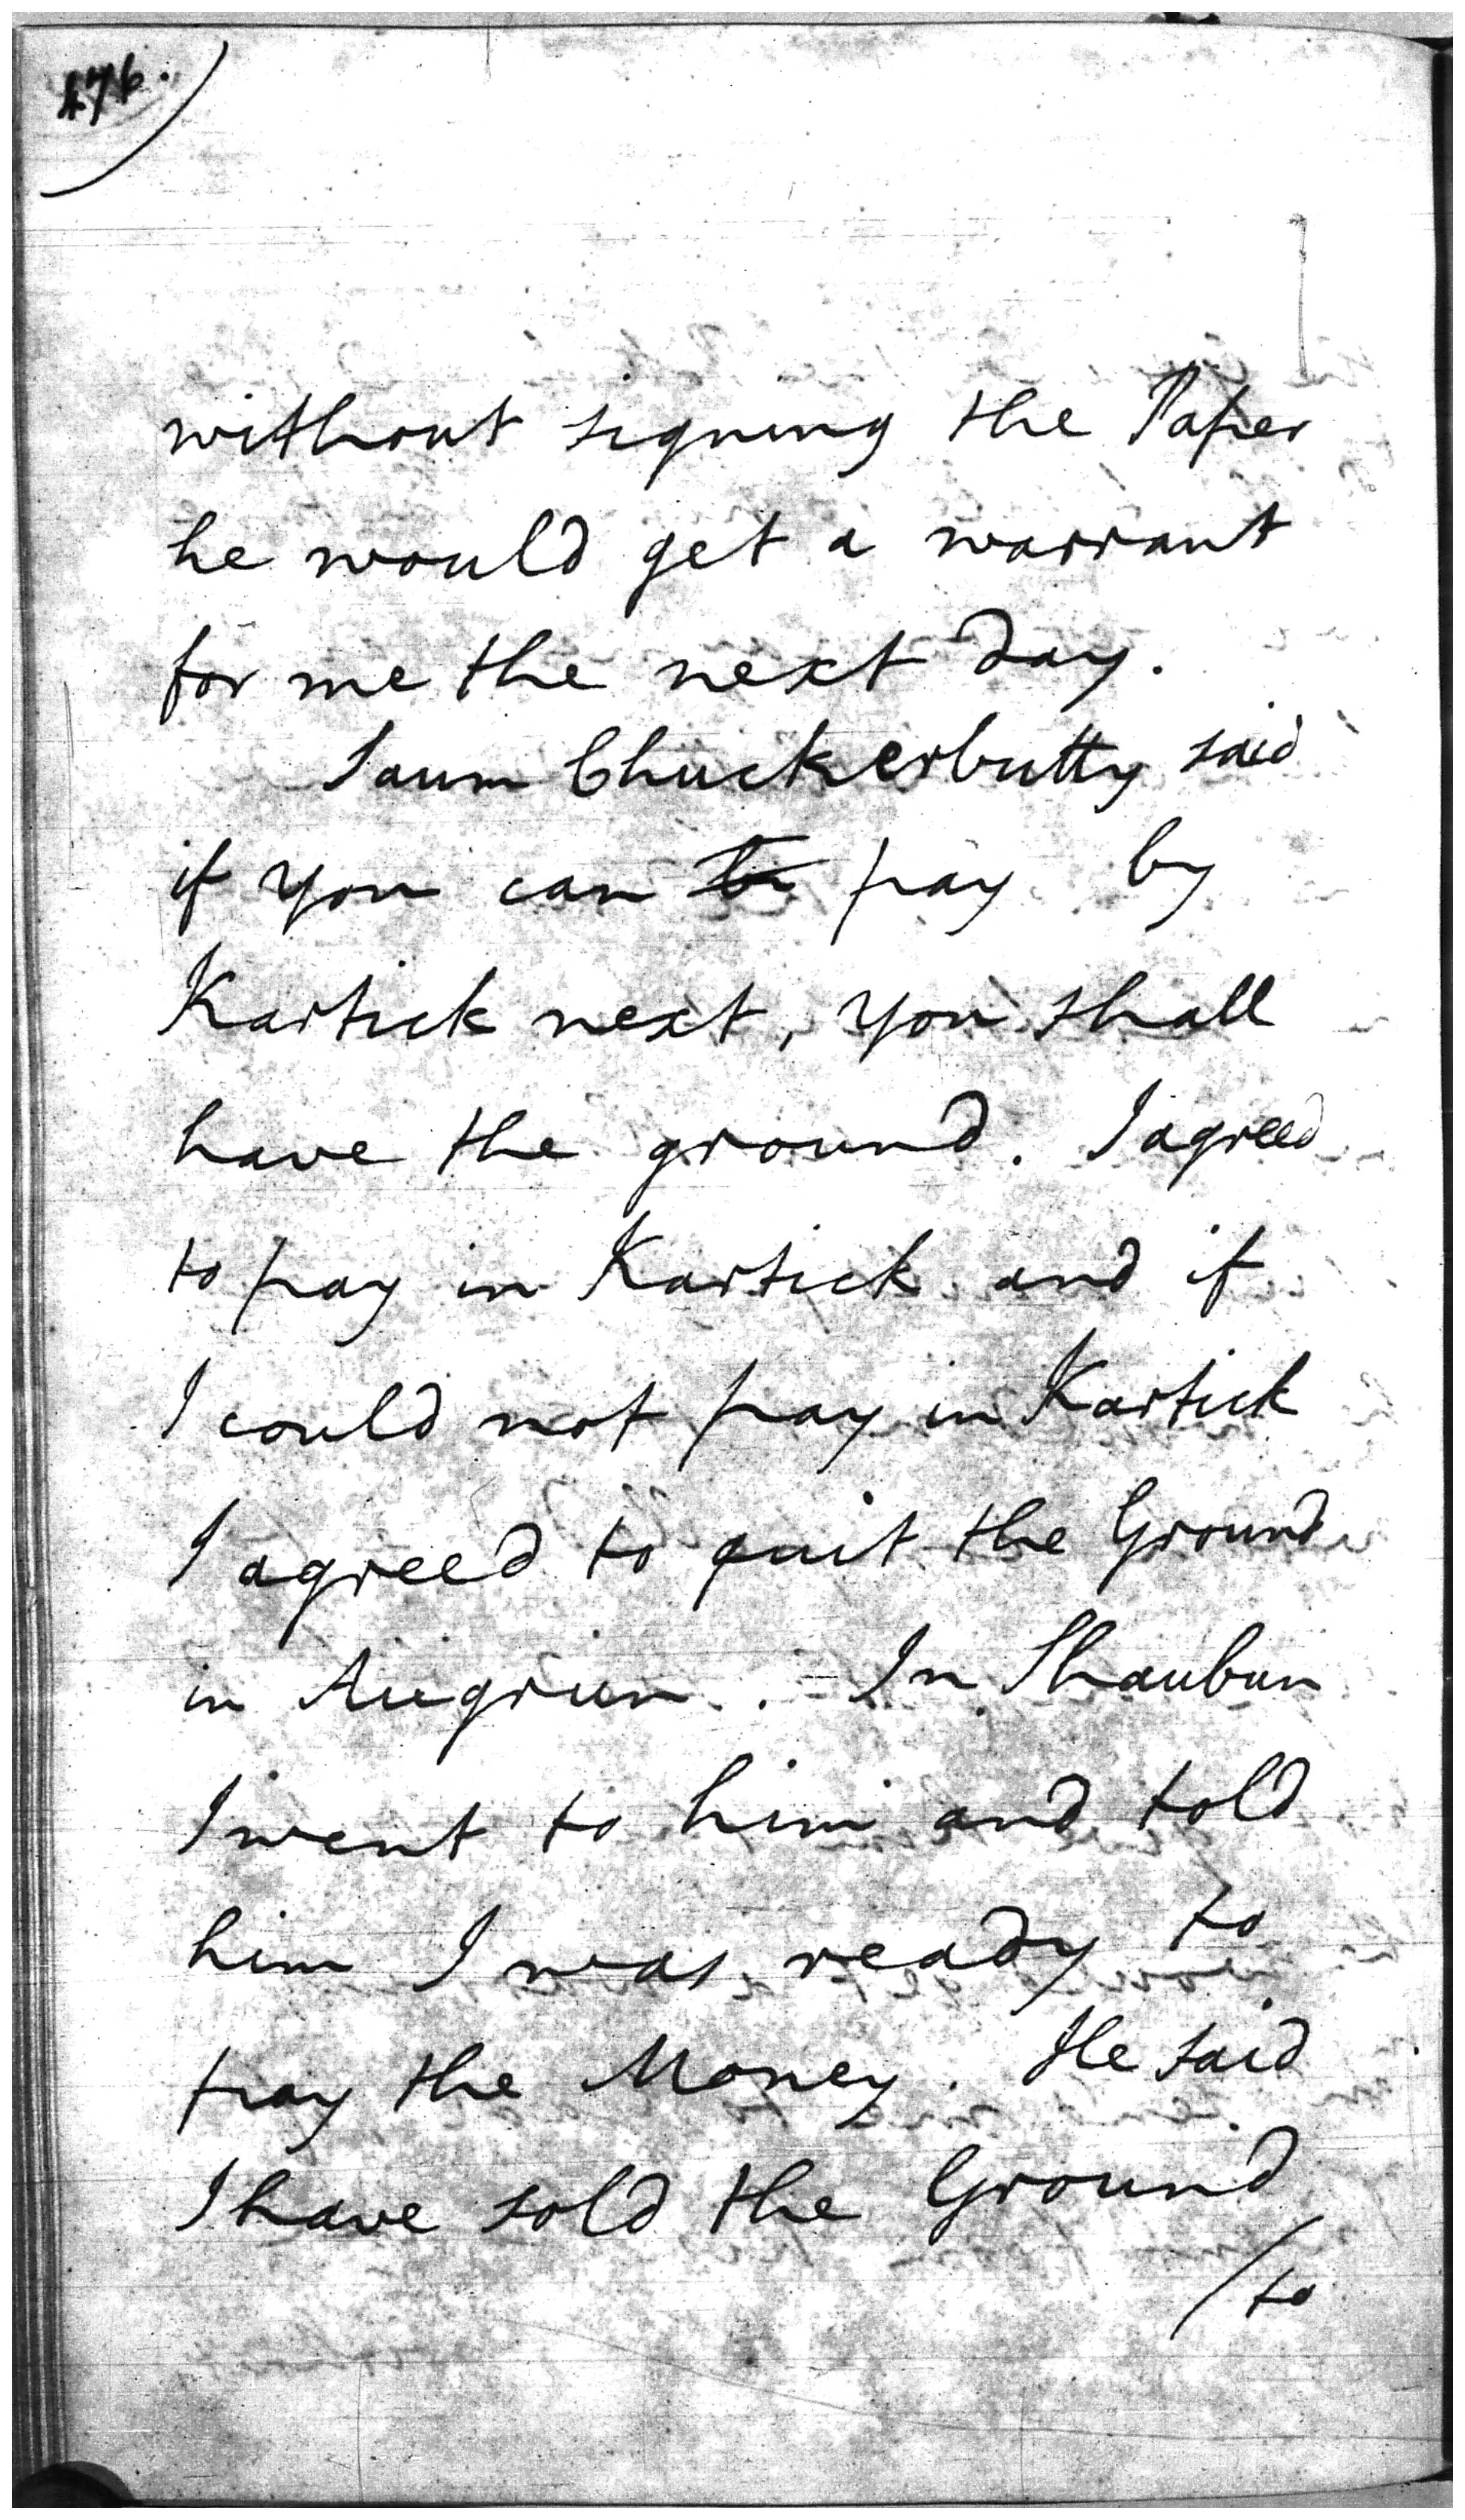 476.
without signing the Paper
he would get a warrant
for me the next day.
Saum Chuckerbutty said
if you can pay by
Kartick next, you shall
have the ground. I agreed
to pay in Kartick and if
I could not pay in Kartick
I agreed to quit the Ground
in Augrun. In Shaubun
I went to him and told
him I was ready to
pay the Money. He said
I have sold the Ground
/to